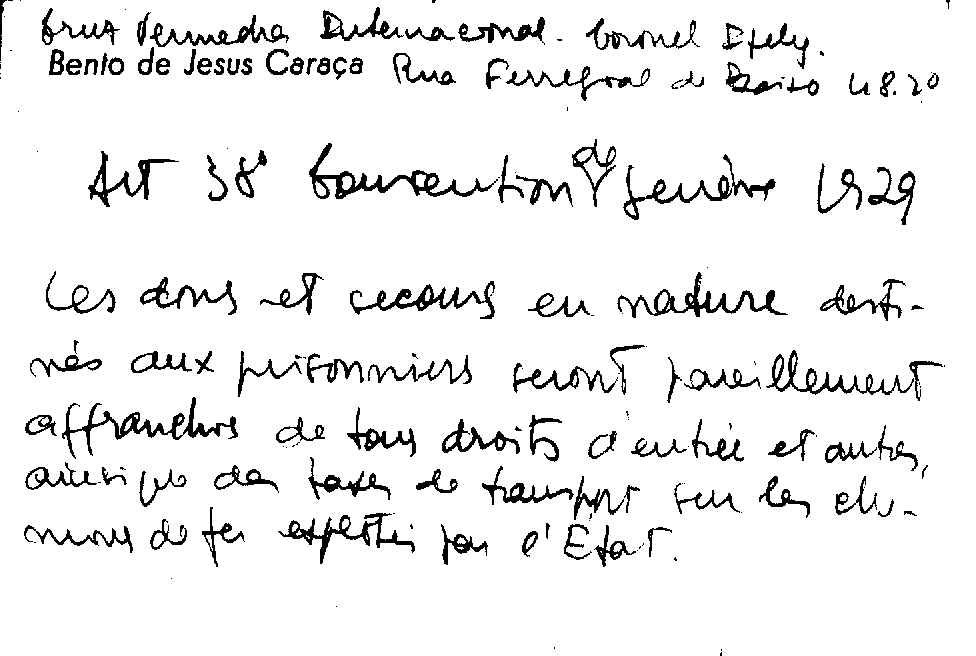 Cruz Vermelha Internacional. Coronel
Bento de Jesus Caraça Rua Ferregial de Baixo 48.20
Art 38° Convention de Genève 1929
Les dons et secours en nature desti-
nés aux prisonniers seront pareillement
affranchis de tous droits d'entrée et autres,
ainsi que des taxes de transport sur les che-
mins de fer exploités par l'Etat.